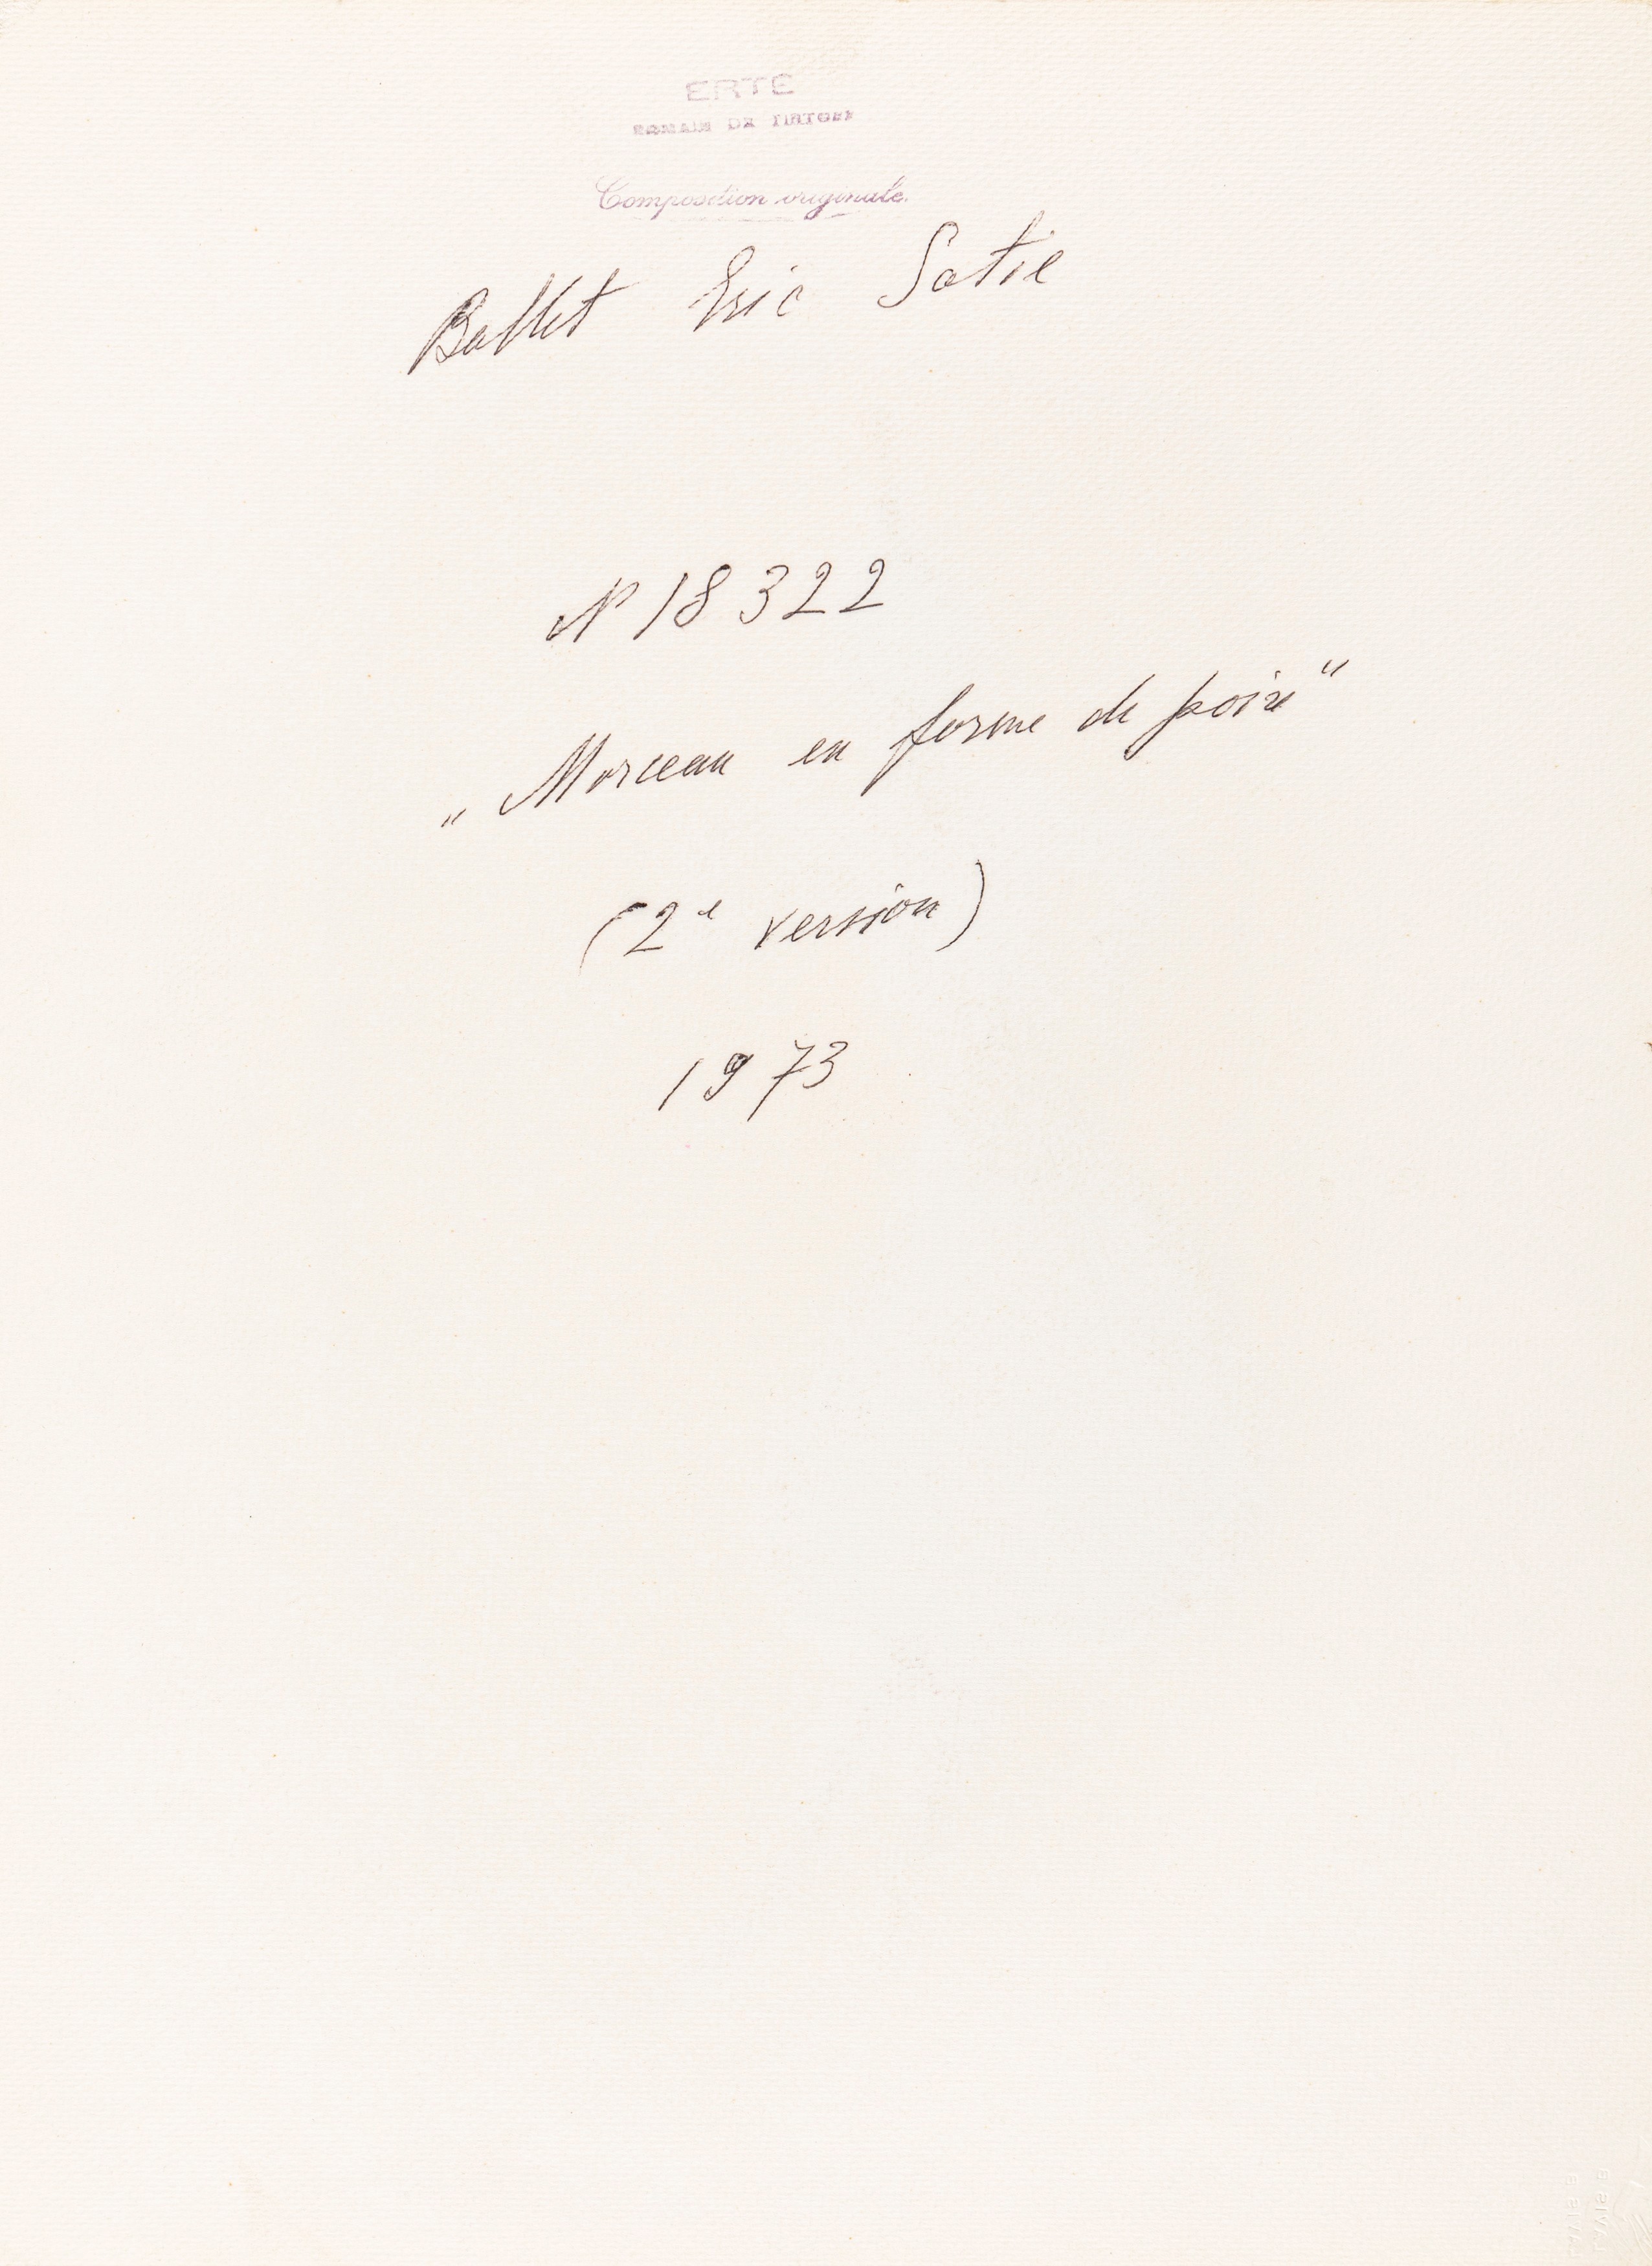 ERTE
ROMAIN DE TIRTOFF
Composition originale.
Ballet Eric Satie
N 18322
„Morceau en forme de poire"
(2e version)
1973